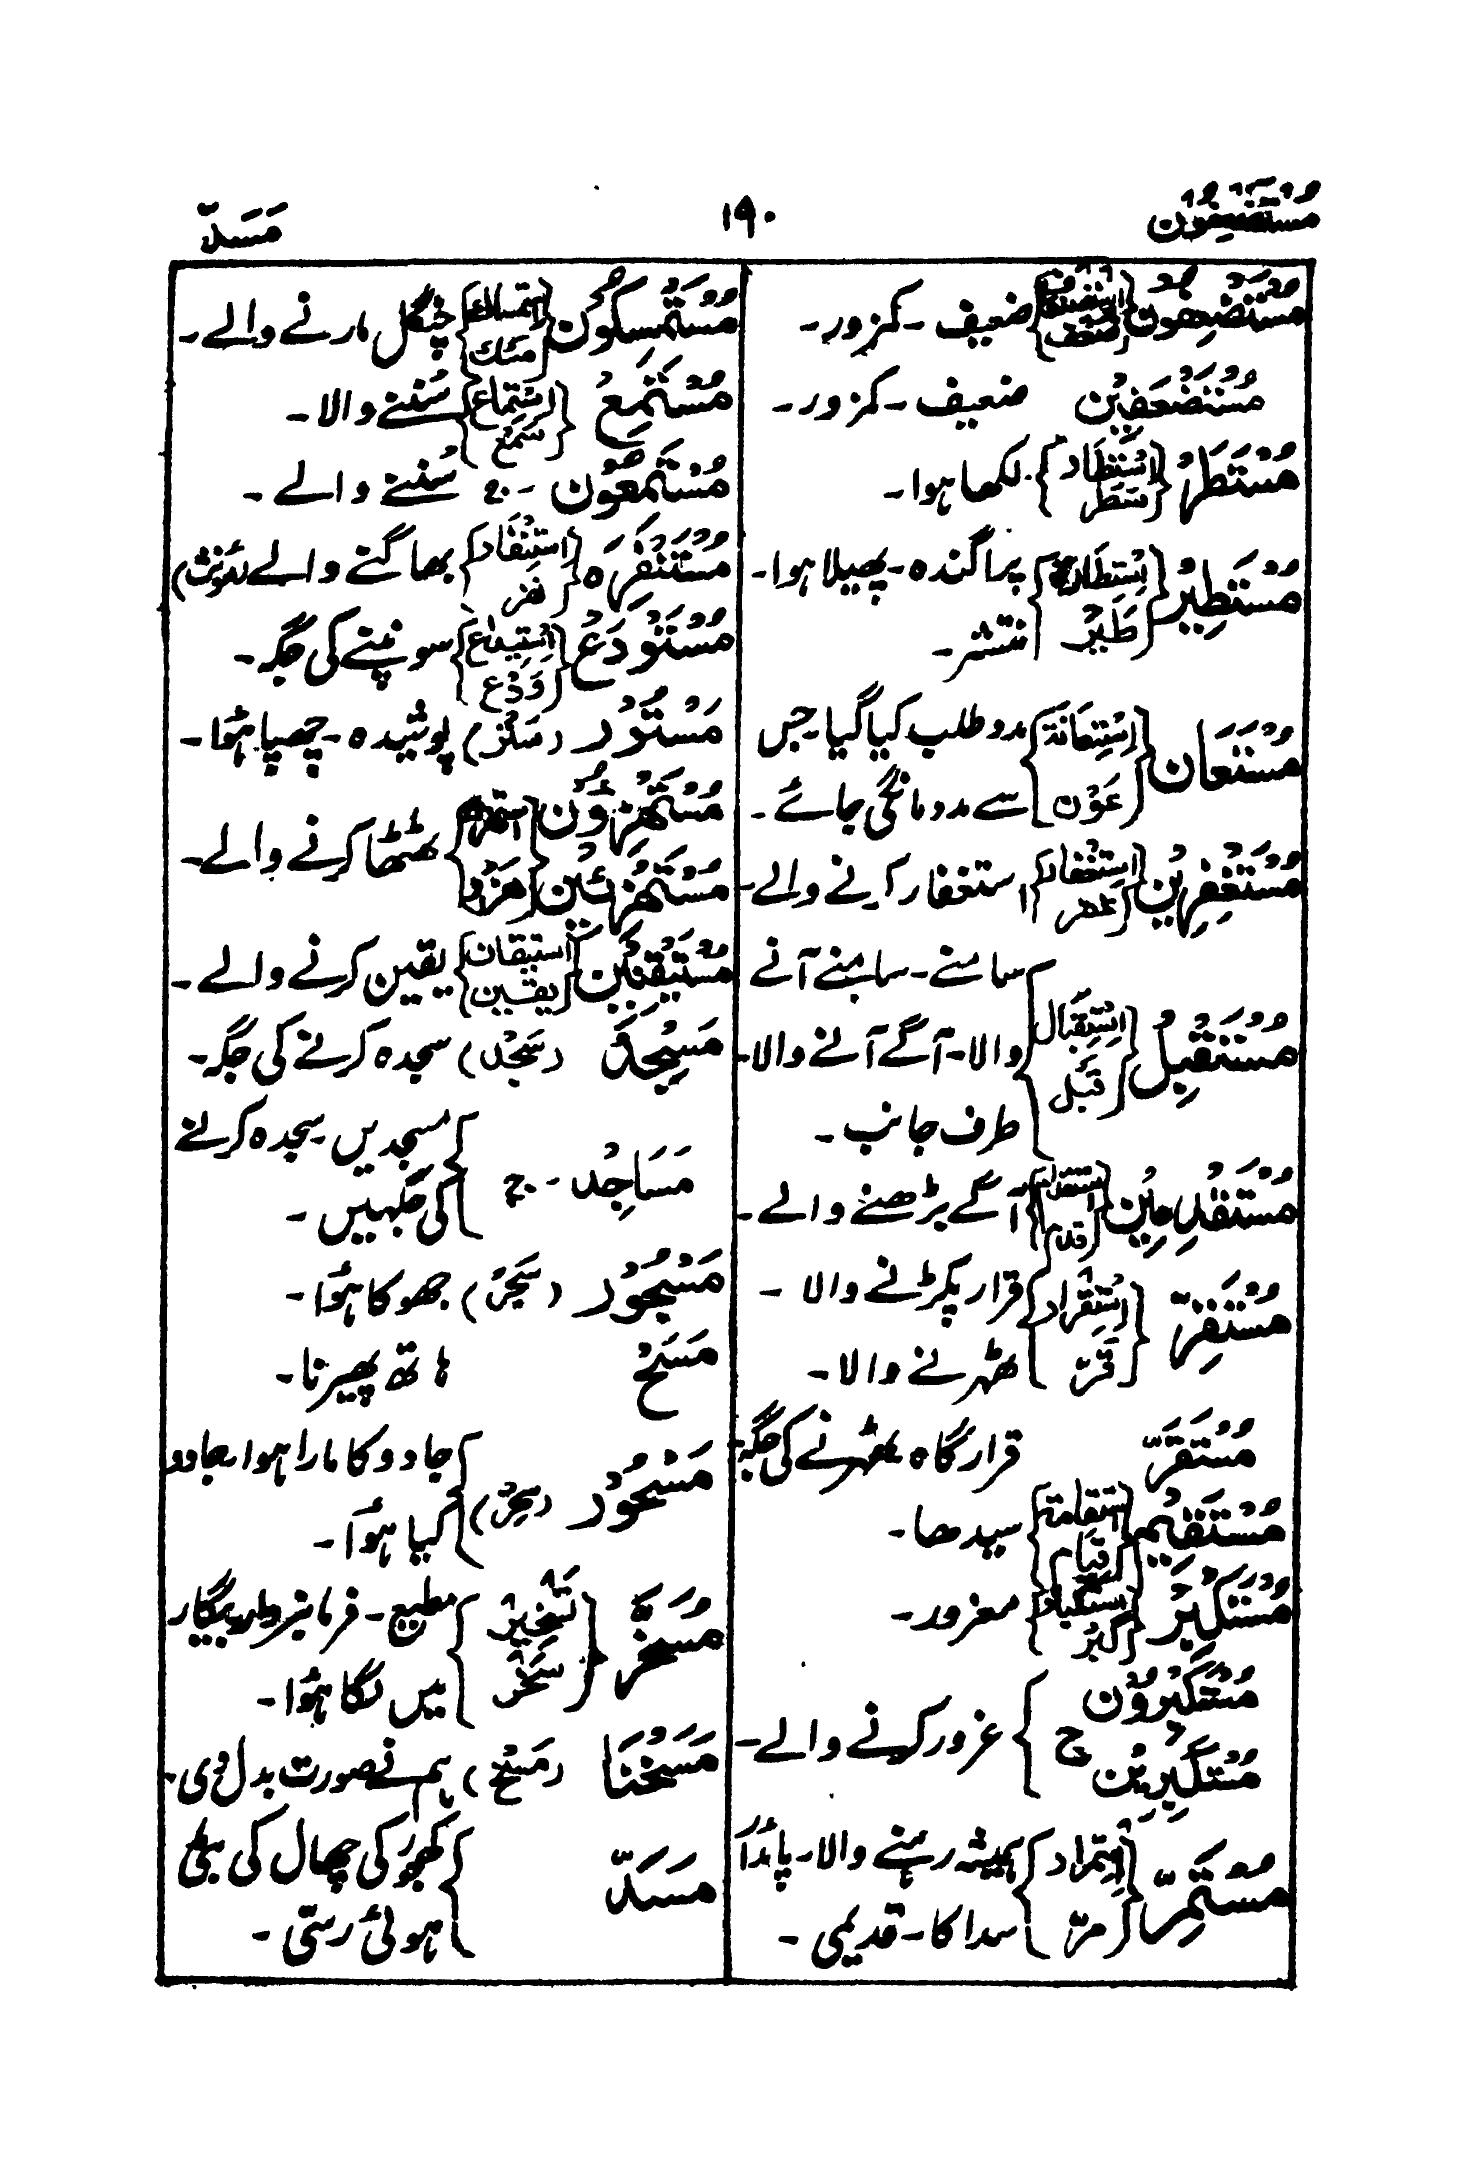 مُسْتَضْعَفُون ۱۹۰ مَسَدّ
مُسْتَضْعَفُون {اِسْتِضْعَاف ضعف} ضعیف ۔ کمزور ۔
مُسْتَضْعَفِیْن ضعیف ۔ کمزور ۔
مُسْتَطَرٌ {اِسْتِطَار سَطَر} لکھا ہوا ۔
مُسْتَطِیْرٌ {اِسْتِطَارَۃ طَیْرٌ} پراگندہ ۔ پھیلا ہوا ۔
منتشر ۔
مُسْتَعَان {اِسْتِعَانَۃ عَوْن} مدد طلب کیا گیا ۔ جس
سے مدد مانگی جائے ۔
مُسْتَغْفِرِیْن {اِسْتِغْفَار غفر} استغفار کرنے والے ۔
سامنے ۔ سامنے آنے
مُسْتَقْبِلٌ {اِسْتِقْبَال قَبْل} والا ۔ آگے آنے والا ۔
طرف جانب ۔
مُسْتَقْدِمِیْن آگے بڑھنے والے ۔
مُسْتَقِرّ {اِسْتِقْرَار قَرّ} قرار پکڑنے والا ۔
ٹھہرنے والا ۔
مُسْتَقَرّ قرار گاہ ٹھہرنے کی جگہ
مُسْتَقِیْم {اِسْتِقَامۃ قیام} سیدھا ۔
مُسْتَکْبِرٌ {اِسْتِکْبَار کِبْرٌ} مغرور ۔
مُسْتَکْبِرُوْن
مُسْتَکْبِرِیْن ج غرور کرنے والے ۔
مُسْتَمِرّ {اِسْتِمْرَار مَرّ} ہمیشہ رہنے والا ۔
سدا کا ۔ قدیمی ۔
مُسْتَمْسِکُوْن {اِسْتِمْسَاك مسك} چنگل مارنے والے ۔
مُسْتَمِعٌ {اِسْتِمَاع سَمْع} سُننے والا ۔
مُسْتَمِعُوْن ۔ ج سُننے والے ۔
مُسْتَنْفِرَہ {اِسْتِنْفَار نفر} بھاگنے والے (مؤنث)
مُسْتَوْدَعٌ {اِسْتِیْدَاع وَدْع} سونپنے کی جگہ ۔
مَسْتُوْر (سَتْر) پوشیدہ ۔ چھپا ہوُا ۔
مُسْتَهْزِءُوْن
مُسْتَهْزِئِیْن ٹھٹھا کرنے والے ۔
مُسْتَیْقِنِیْن {اِسْتِیْقَان یقین} یقین کرنے والے ۔
مَسْجِدٌ (سَجْد) سجدہ کرنے کی جگہ ۔
مَسَاجِدُ ۔ ج مسجدیں ۔ سجدہ کرنے
کی جگہیں ۔
مَسْجُوْر (سَجْر) جھوکا ہؤا ۔
مَسْحٌ ہاتھ پھیرنا ۔
مَسْحُوْر (سِحْرٌ) جادو کا مارا ہوا ۔ جادو
کیا ہؤا ۔
مُسَخَّرٌ {تَسْخِیْرٌ سَخْرٌ} مطیع ۔ فرمانبردار بیگار
میں لگا ہؤا ۔
مَسَخْنَا (مَسْخٌ) ہم نے صورت بدل دی ۔
مَسَدّ کھجور کی چھال کی بٹی
ہوئی رسّی ۔